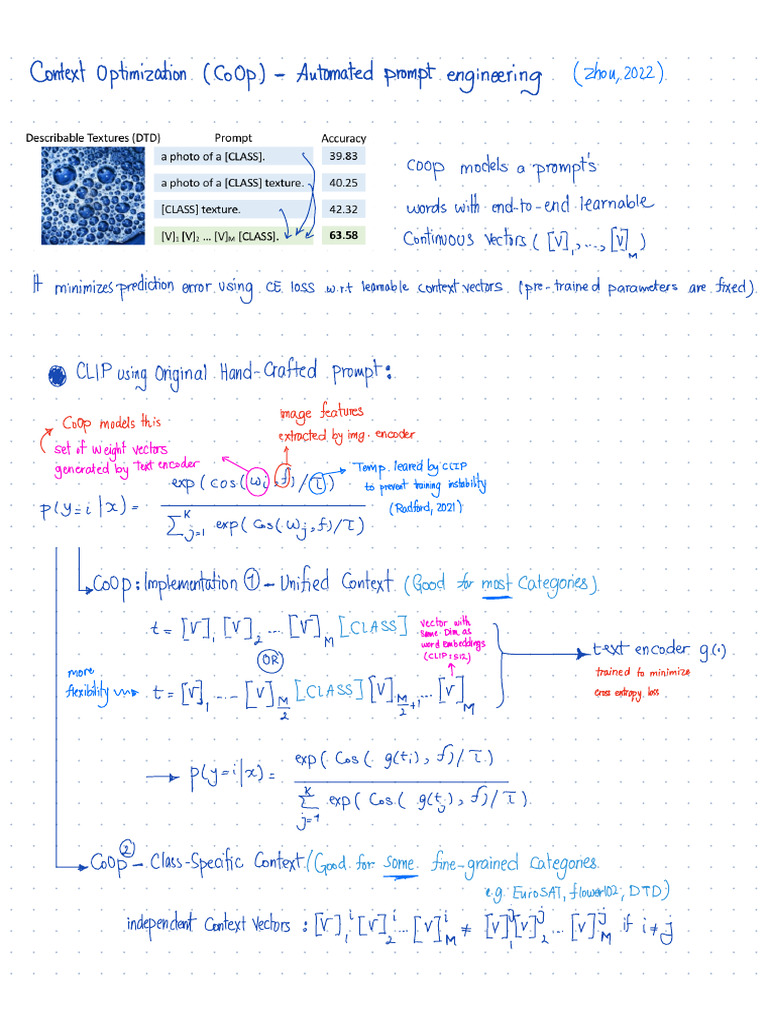 Context Optimization (CoOp) – Automated prompt engineering (Zhou, 2022)
Describable Textures (DTD) Prompt Accuracy
a photo of a [CLASS]. 39.83
a photo of a [CLASS] texture. 40.25
[CLASS] texture. 42.32
[V]₁ [V]₂ ... [V]M [CLASS]. 63.58
COOP models a prompt's
words with end-to-end learnable
Continuous Vectors ( [V]₁, ..., [V]M )
It minimizes prediction error using CE loss w.r.t learnable context vectors. (pre-trained parameters are fixed).
CLIP using Original Hand-Crafted prompt:
CoOp models this
set of weight vectors
generated by text encoder
image features
extracted by img. encoder
Temp. leared by CLIP
to prevent training instability
(Radford, 2021)
p(y=i|x) = exp(cos(wi, f)/τ) / Σ_{j=1}^{K} exp(cos(wj, f)/τ)
CoOp: Implementation ① – Unified Context (Good for most Categories).
t = [V]₁ [V]₂ .... [V]M [CLASS]
Vector with
same Dim. as
word embeddings
(CLIP: 512)
OR
more
flexibility
t = [V]₁ ... [V]M/2 [CLASS] [V]M/2+1 ... [V]M
text encoder g(.)
trained to minimize
cross entropy loss
p(y=i|x) = exp(cos(g(ti), f)/τ) / Σ_{j=1}^{K} exp(cos(g(tj), f)/τ).
CoOp ② – Class-Specific Context (Good for some fine-grained categories.
e.g. EuroSAT, flower102, DTD)
independent Context Vectors : [V]₁ⁱ [V]₂ⁱ ... [V]Mⁱ ≠ [V]₁ʲ [V]₂ʲ ... [V]Mʲ if i ≠ j